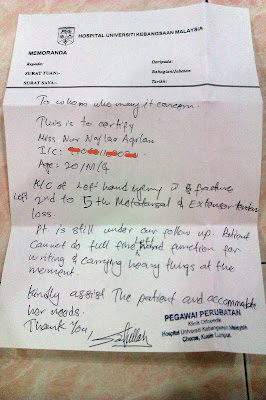 HOSPITAL UNIVERSITI KEBANGSAAN MALAYSIA
MEMORANDA
Kepada: Daripada:
SURAT TUAN: Bahagian/Jabatan
SURAT SAYA: Tarikh:
To whom who may it concern.
This is to certify
Miss Nur Najlaa Aqilah
I/c:
Age: 20/M/
K/C of Left hand injury & fracture
left 2nd to 5th Metatarsal & Extensor tendon
loss.
Pt is still under our follow up. Patient
cannot do full hand function for
writing & carrying heavy things at the
moment.
Kindly assist The patient and accommodate
her needs.
Thank You,
PEGAWAI PERUBATAN
Klinik Ortopedik
Hospital Universiti Kebangsaan Malaysia
Cheras, Kuala Lumpur.